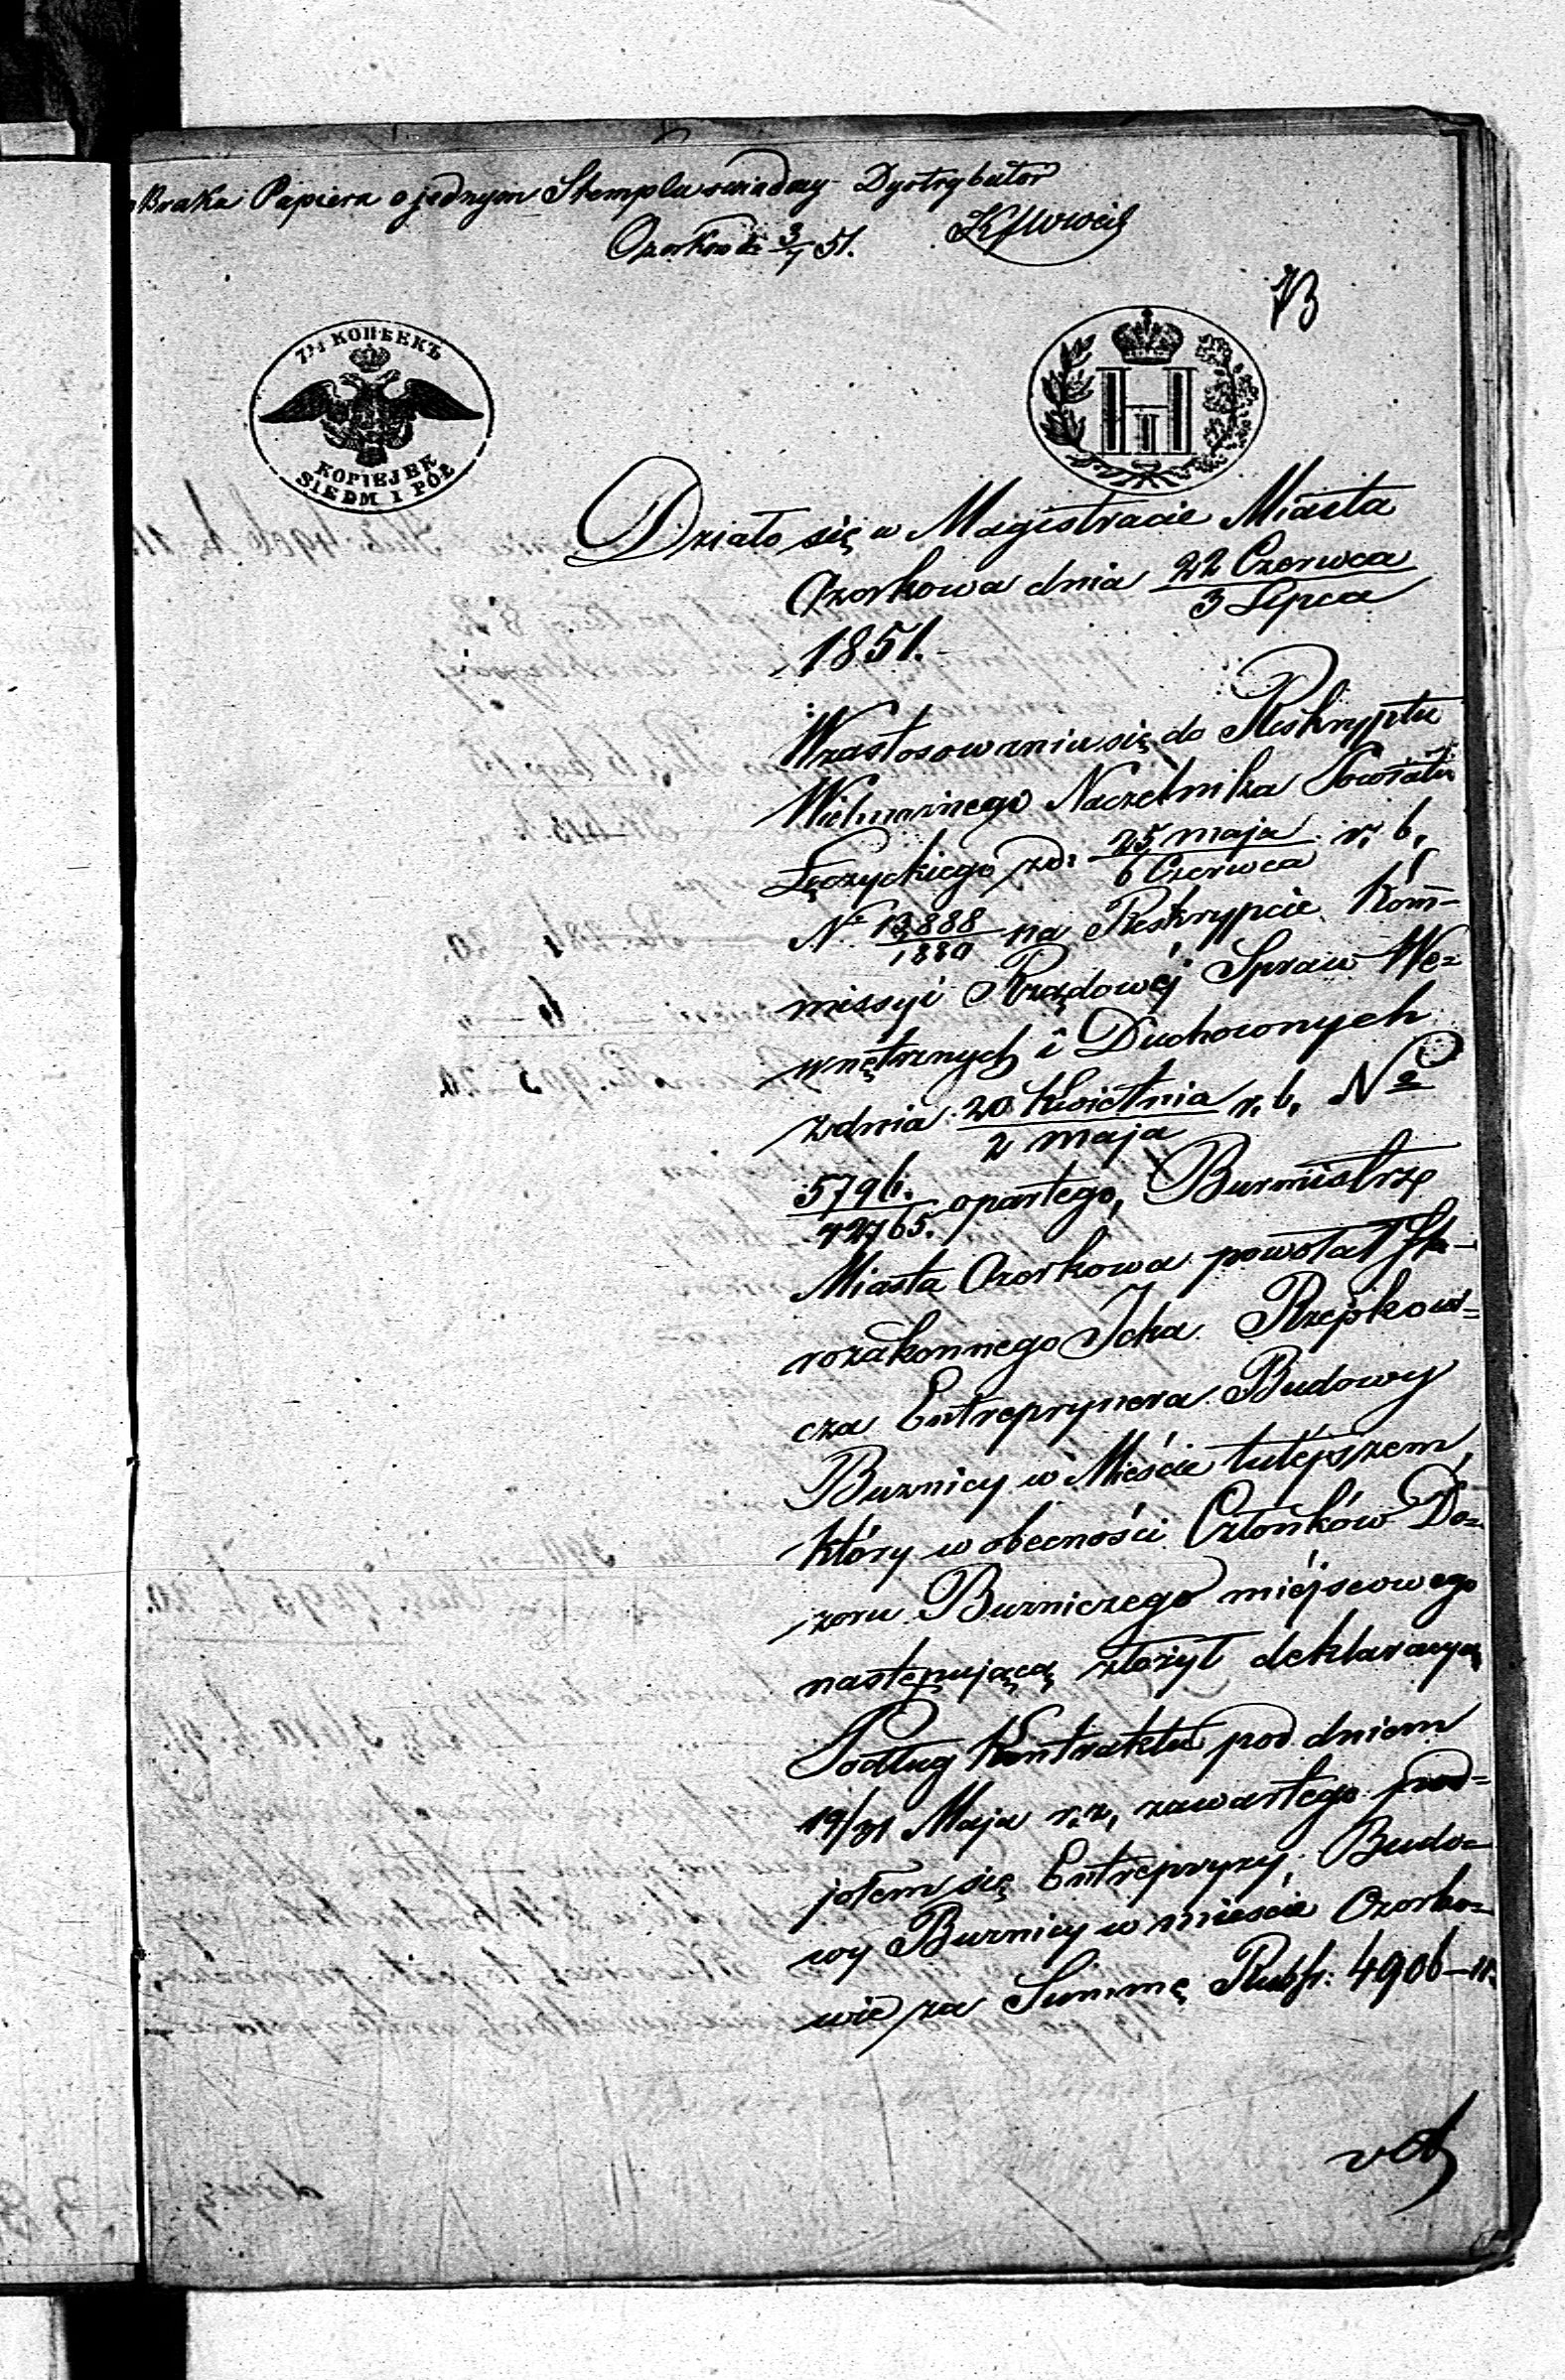 Braku Papieru o jednym Stemplu swiadczy Dystrybutor
Ozorków d. 3/7 51.
73
7½ КОПѢЕКЪ
KOPIEJEK
SIEDM I PÓŁ
Działo się w Magistracie Miasta
Ozorkowa dnia 22 Czerwca / 3 Lipca
1851.
Wzastosowaniu się do Reskryptu
Wielmożnego Naczelnika Powiatu
Łęczyckiego zd: 25 maja / 6 Czerwca r. b.
N° 13888 / 1880 na Reskrypcie Kom-
missyi Rządowéj Spraw We=
wnętrznych i Duchownych
z dnia 20 Kwietnia / 2 maja r. b. N°
5796. / 42765. opartego, Burmistrz
Miasta Ozorkowa powołał Sta-
rozakonnego Icka Rzepkow=
cza Entreprynera Budowy
Buznicy w Mieście tutéjszem,
który w obecności Członków Do=
zoru Buzniczego miéjscowego
następującą złożył deklaracyą
Podług Kontraktu pod dniem
19/31 Maja r. z. zawartego pod=
jołem się Entrepryzy, Budo=
wy Buznicy w mieście Ozorko=
wie za Summę Rubsr. 4906–11.